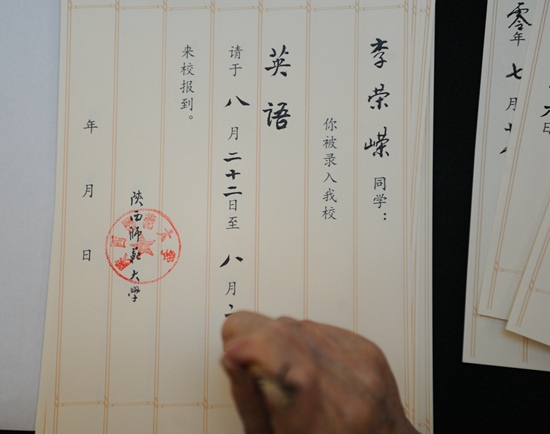 李荣嵘同学：
你被录入我校
英语
请于八月二十二日至八月二
来校报到。
陕西师范大学
年月日
零年七月十八